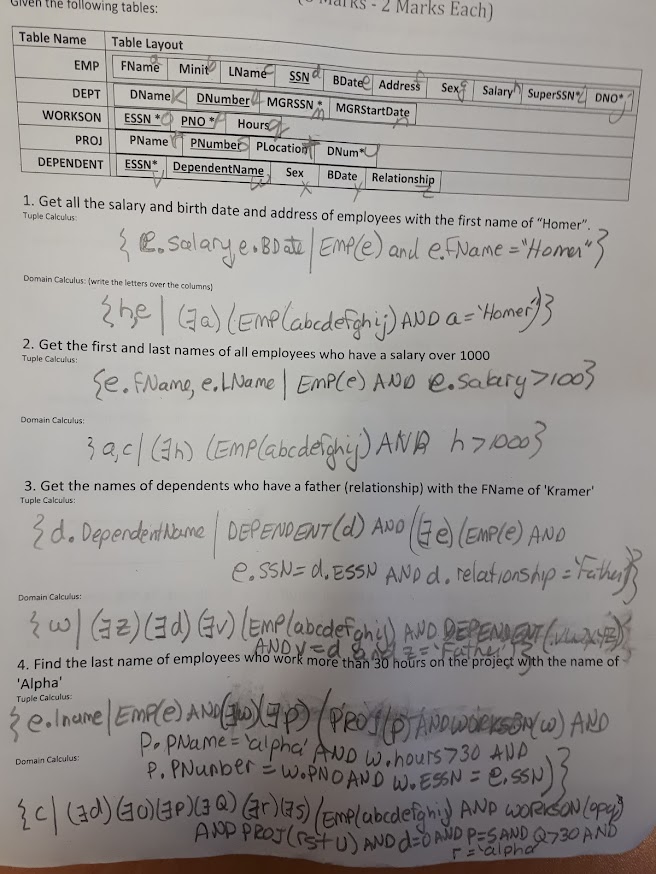 Given the following tables:
Marks - 2 Marks Each)
Table Name Table Layout
EMP FName a Minit b LName c SSN d BDate e Address f Sex g Salary h SuperSSN* i DNO* j
DEPT DName k DNumber l MGRSSN * m MGRStartDate n
WORKSON ESSN * o PNO * p Hours q
PROJ PName r PNumber s PLocation t DNum* u
DEPENDENT ESSN* v DependentName w Sex x BDate y Relationship z
1. Get all the salary and birth date and address of employees with the first name of “Homer”.
Tuple Calculus:
{ e.salary, e.BDate | Emp(e) and e.FName = "Homer"}
Domain Calculus: (write the letters over the columns)
{h,e | (∃a) (EMP(abcdefghij) AND a = 'Homer')}
2. Get the first and last names of all employees who have a salary over 1000
Tuple Calculus:
{e.FName, e.LName | EMP(e) AND e.salary >100}
Domain Calculus:
} a,c | (∃h) (EMP(abcdefghij) AND h > 1000}
3. Get the names of dependents who have a father (relationship) with the FName of 'Kramer'
Tuple Calculus:
{ d. DependentName | DEPENDENT(d) AND ((∃e) (EMP(e) AND
e.SSN = d.ESSN AND d. relationship = 'Father'))}
Domain Calculus:
{ w | (∃z) (∃d) (∃v) (EMP(abcdefghij) AND DEPENDENT(vwxyz)
AND v=d AND z = 'Father')}
4. Find the last name of employees who work more than 30 hours on the project with the name of
'Alpha'
Tuple Calculus:
{ e.lname | EMP(e) AND (∃w) (∃p) (PROJ(p) AND WORKSON(w) AND
P. PName = 'alpha' AND w.hours >30 AND
P. PNunber = w.PNO AND w.ESSN = e.SSN)}
Domain Calculus:
{ c | (∃d) (∃o)(∃P)(∃Q) (∃r)(∃s) (Emp(abcdefghij) AND WORKSON(opq)
AND PROJ(rstu) AND d=o AND P=S AND Q>30 AND
r = 'alpha'